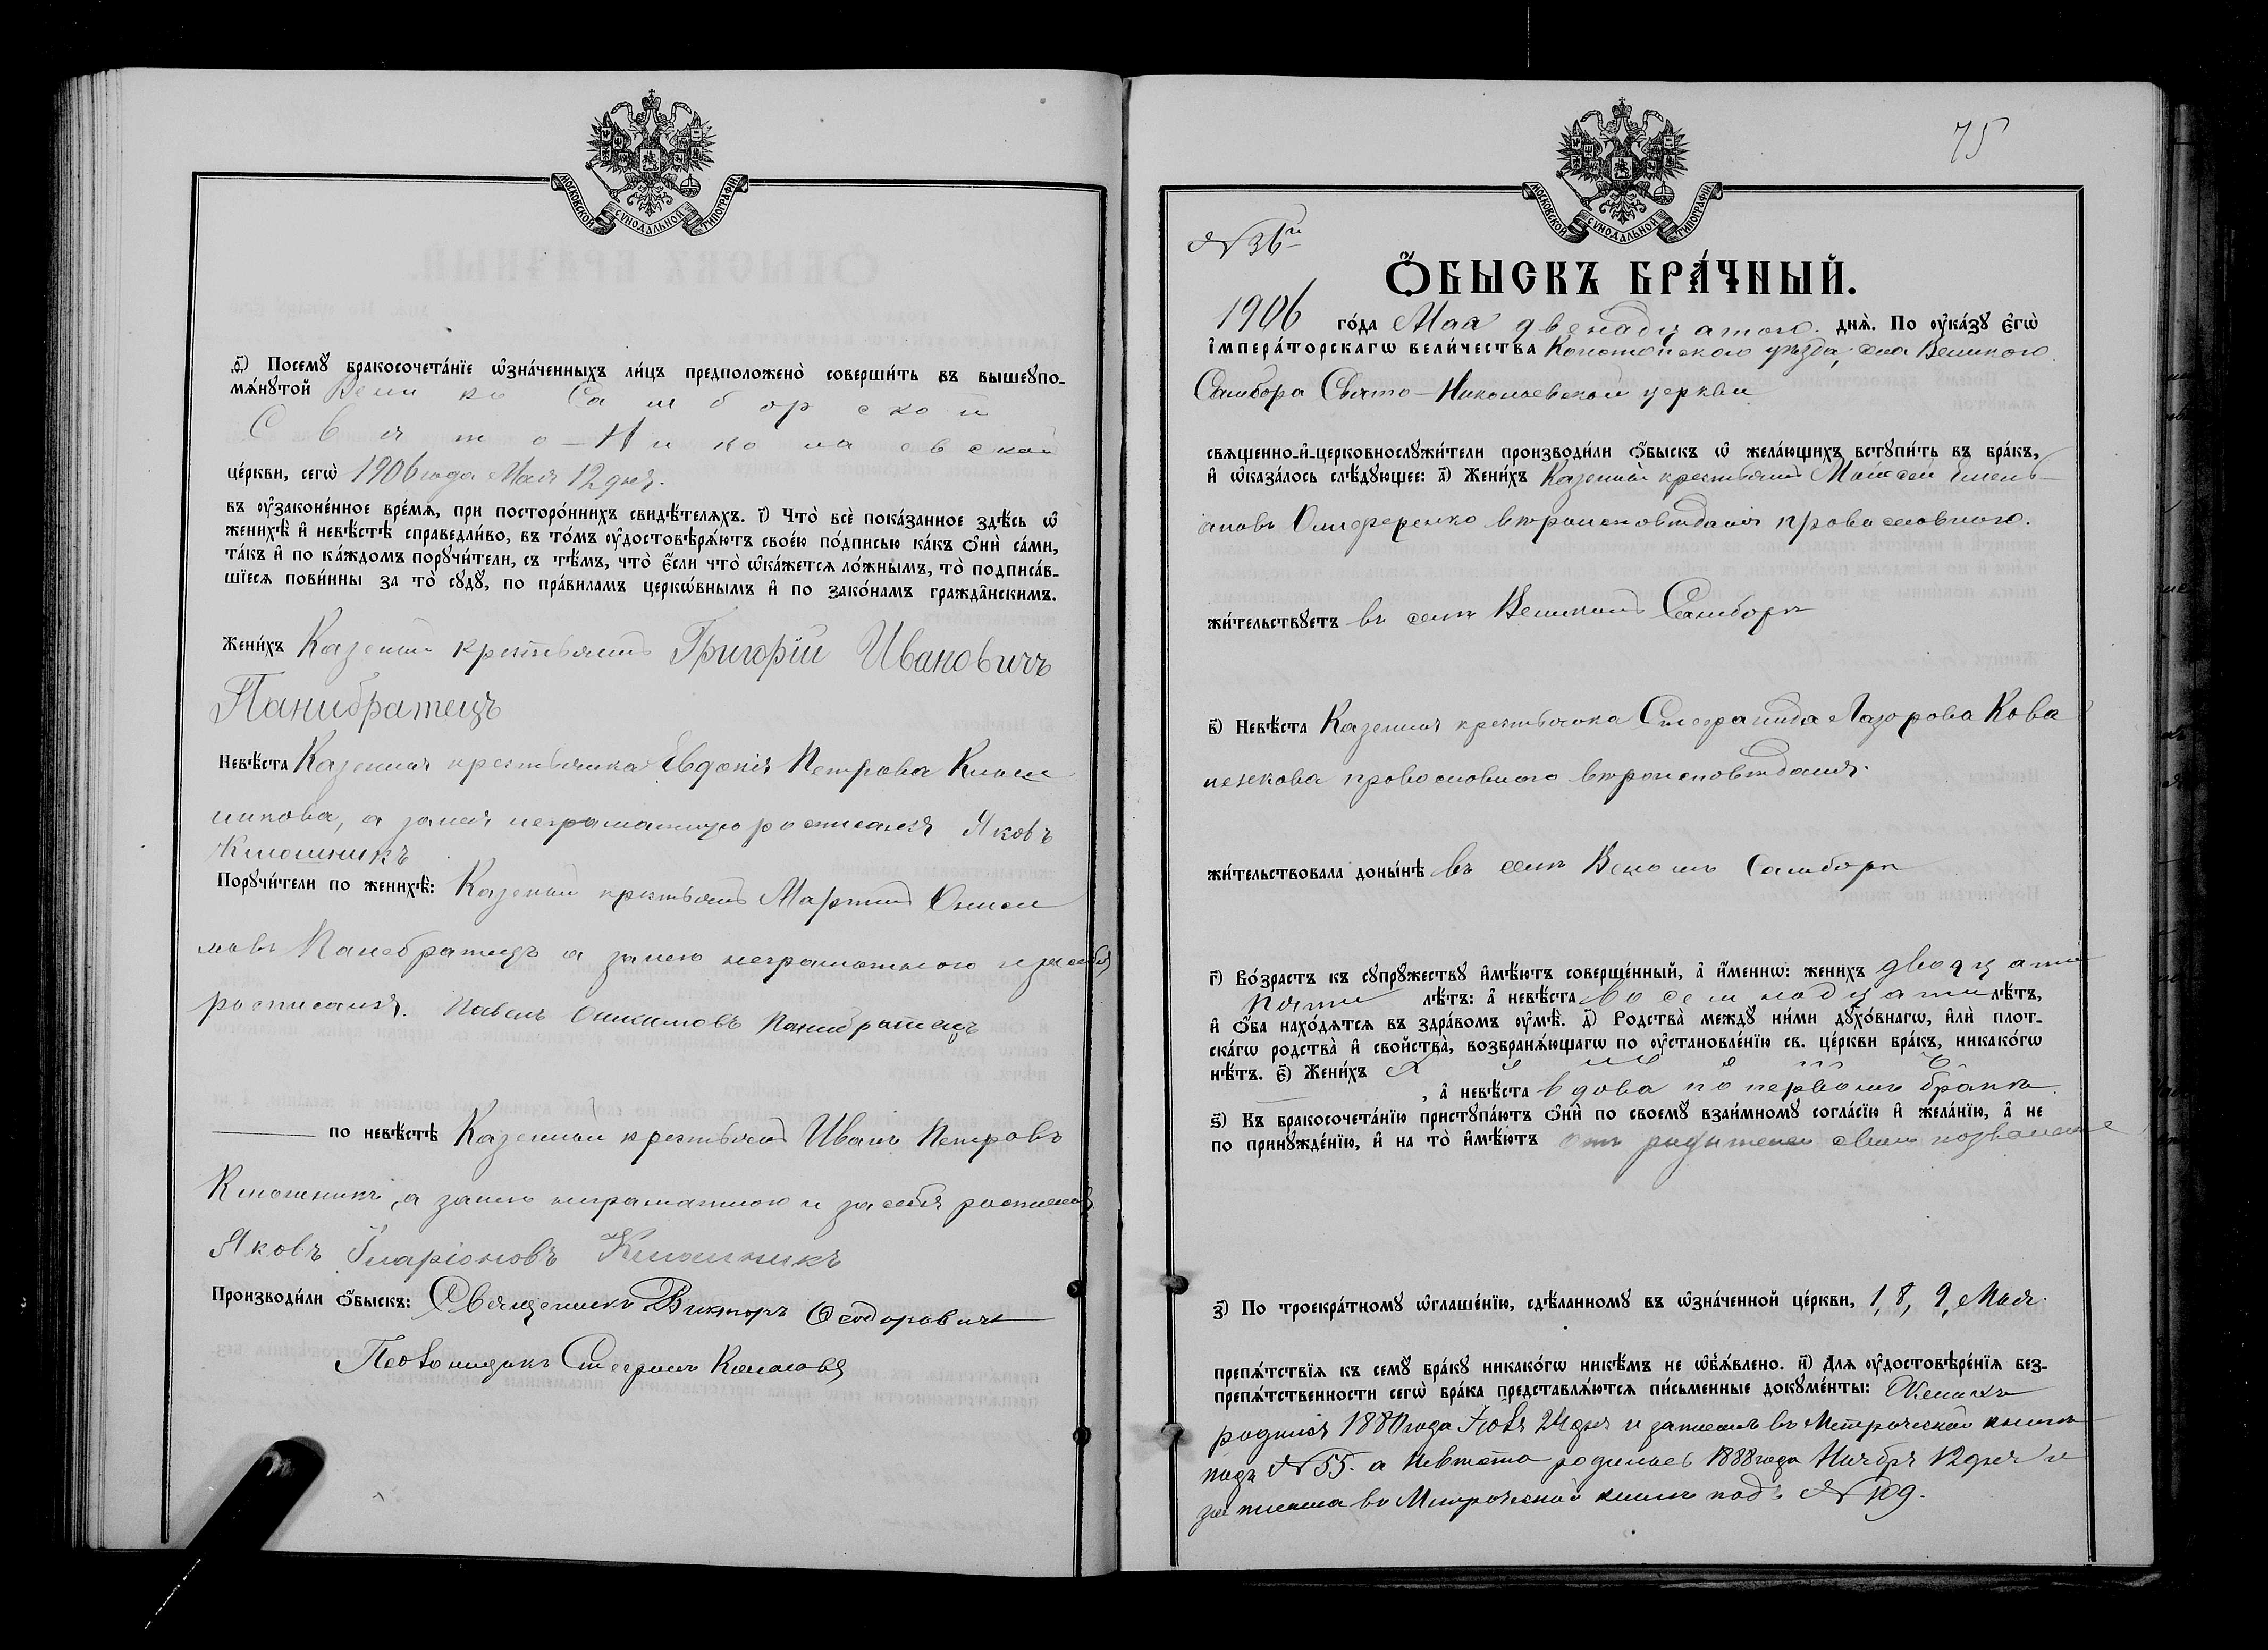 МОСКОВСКОЙ СѴНОДАЛЬНОЙ ТИПОГРАФІИ
Посемꙋ̀ бракосочета́нїе ѡ҆зна́ченныхъ ли́цъ предположено̀ соверши́ть въ вышеꙋпо-
мѧ́нꙋтой Велико Самборской
Свято-Николаевской
це́ркви, сегѡ̀ 1906 года Мая 12 дня.
въ ᲂу҆зако́ненное вре́мѧ, при посторо́ннихъ свидѣ́телѧхъ. і҃) Что̀ всѐ пока́занное здѣ́сь ѡ҆
женихѣ̀ и҆ невѣ́стѣ справедли́во, въ то́мъ ᲂу҆достовѣрѧ́ютъ свое́ю по́дписью ка́къ ѻ҆нѝ са́ми,
та́къ и҆ по ка́ждомъ порꙋчи́тели, съ тѣ́мъ, что̀ є҆́сли что̀ ѡ҆ка́жетсѧ ло́жнымъ, то̀ подписа́в-
шїесѧ пови́нны за то̀ сꙋдꙋ̀, по пра́виламъ церкѡ́внымъ и҆ по зако́намъ гражда̂нскимъ.
Жени́хъ Казенный крестьянинъ Григорій Ивановичъ
Панибратецъ
Невѣ́ста Казенная крестьянка Евдокія Петрова Клюш
никова, а за нея неграматную росписался Яковъ
Клюшникъ
Порꙋчи́тели по женихѣ̀: Казенный крестьянинъ МартинъОниси
мовъ Панебратецъ а за него неграмотного и за себя
росписался. Павелъ Онисимовъ Панибратецъ
по невѣ́стѣ Казенный крестьянинъ Иванъ Петровъ
Клюшникъ, а за него неграматного и за себя росписался
Яковъ Иларіоновъ Клюшникъ
Производи́ли ѻ҆́быскъ: Священникъ Викторъ Ѳеодоровичъ
Псаломщикъ
75
МОСКОВСКОЙ СѴНОДАЛЬНОЙ ТИПОГРАФІИ
№ 36й
Ѻ҆́БЫСКЪ БРА́ЧНЫЙ.
1906 го́да Мая двенадцатого днѧ̀. По ᲂу҆ка́зꙋ є҆гѡ̀
і҆мпера́торскагѡ вели́чества Конотопского уѣзда, села Великого
Самбора Свято-Николаевской церкви
свѧщенно-и҆-церковнослꙋжи́тели производи́ли ѻ҆́быскъ ѡ҆ жела́ющихъ встꙋпи́ть въ бра́къ,
и҆ ѡ҆каза́лось слѣ́дꙋющее: а҃) Жени́хъ Казенный крестьянинъ Моисей Емель-
ановъ Олиференко вѣроисповѣданія православного.
жи́тельствꙋетъ въ селѣ Великомъ Самборѣ
в҃) Невѣ́ста Казенная крестьянка Лазорова Кова
ленкова православного вѣроисповѣданія.
жи́тельствовала доны́нѣ въ селѣ Самборѣ
г҃) Во́зрастъ къ сꙋпрꙋ́жествꙋ и҆мѣ́ютъ соверше́нный, а҆ и҆́меннѡ: жени́хъ двадцати
пяти лѣ́тъ: а҆ невѣ́ста восемнадцати лѣ́тъ,
и҆ ѻ҆́ба нахо́дѧтсѧ въ здра́вомъ ᲂу҆мѣ̀. д҃) Родства̀ междꙋ̀ ни́ми дꙋхо́внагѡ, и҆лѝ плот-
ска́гѡ родства̀ и҆ свойства̀, возбранѧ́ющагѡ по ᲂу҆становле́нїю св. це́ркви бра́къ, никако́гѡ
нѣ́тъ. є҃) Жени́хъ холостъ
, а҆ невѣ́ста вдова по первомъ бракѣ
ѕ҃) Къ бракосочета́нїю пристꙋпа́ютъ ѻ҆нѝ по своемꙋ̀ взаи́мномꙋ согла́сїю и҆ жела́нїю, а҆ не
по принꙋжде́нїю, и҆ на то̀ и҆мѣ́ютъ отъ родителей своихъ позволеніе
з҃) По троекра́тномꙋ ѡ҆глаше́нїю, сдѣ́ланномꙋ въ ѡ҆зна́ченной це́ркви, 1, 8, 9, Мая.
препѧ́тствїѧ къ семꙋ̀ бра́кꙋ никако́гѡ никѣ́мъ не ѡ҆б̾ѧ́влено. и҃) Длѧ ᲂу҆достовѣре́нїѧ без-
препѧ́тственности сегѡ̀ бра́ка представлѧ́ютсѧ пи́сьменные докꙋме́нты: Женихъ
родился 1880 года 24 дня и записанъ въ Метрической книгѣ
подъ № 55. а Невѣста родилась 1888 года Ноября 12 дня и
записана въ Метрической книгѣ подъ № 109.